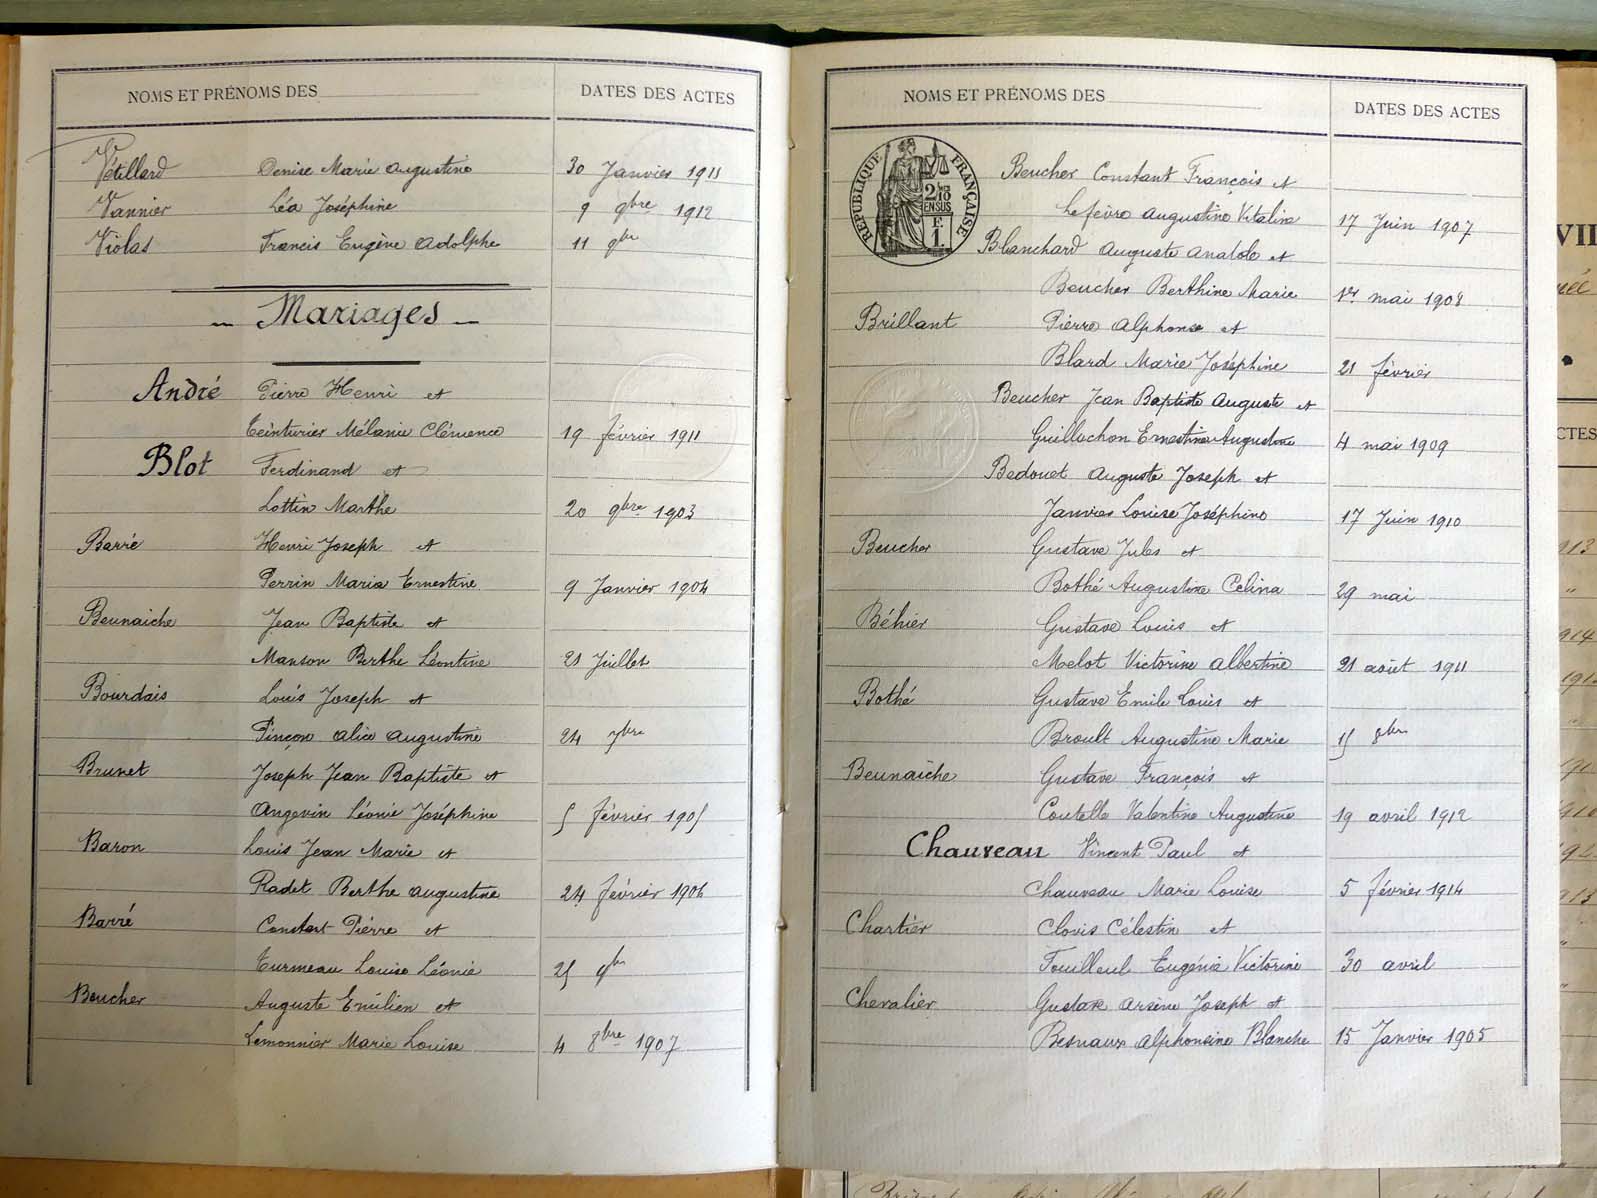 NOMS ET PRÉNOMS DES DATES DES ACTES
Vétillard Denise Marie Augustine 30 Janvier 1911
Vannier Léa Joséphine 9 9bre 1912
Violas Francis Eugène Adolphe 11 9bre
Mariages
André Pierre Henri et
Teinturier Mélanie Clémence 19 février 1911
Blot Ferdinand et
Lottin Marthe 20 9bre 1903
Barré Henri Joseph et
Perrin Maria Ernestine 9 Janvier 1904
Beunaiche Jean Baptiste et
Manson Berthe Léontine 21 Juillet
Bourdais Louis Joseph et
Pinçon Alice Augustine 24 7bre
Brunet Joseph Jean Baptiste et
Angevin Léonie Joséphine 5 février 1905
Baron Louis Jean Marie et
Radet Berthe Augustine 24 février 1906
Barré Constant Pierre et
Turmeau Louise Léonie 25 9bre
Beucher Auguste Emilien et
Lemonnier Marie Louise 4 8bre 1907
NOMS ET PRÉNOMS DES DATES DES ACTES
RÉPUBLIQUE FRANÇAISE
2/10
EN SUS
E
1
Beucher Constant François et
Lefèvre Augustine Vitaline 17 Juin 1907
Blanchard Auguste Anatole et
Beucher Berthine Marie 1er mai 1908
Brillant Pierre Alphonse et
Blard Marie Joséphine 21 février
Beucher Jean Baptiste Auguste et
Guillochon Ernestine Augustine 4 mai 1909
Bedouet Auguste Joseph et
Janvier Louise Joséphine 17 Juin 1910
Beucher Gustave Jules et
Bothé Augustine Celina 29 mai
Béhier Gustave Louis et
Melot Victorine Albertine 21 août 1911
Bothé Gustave Emile Louis et
Broult Augustine Marie 15 8bre
Beunaiche Gustave François et
Coutelle Valentine Augustine 19 avril 1912
Chauveau Vincent Paul et
Chauveau Marie Louise 5 février 1914
Chartier Clovis Célestin et
Fouilleul Eugénie Victorine 30 avril
Chevalier Gustave Arsène Joseph et
Besnaux Alphonsine Blanche 15 Janvier 1905
VII
CTES
913
914